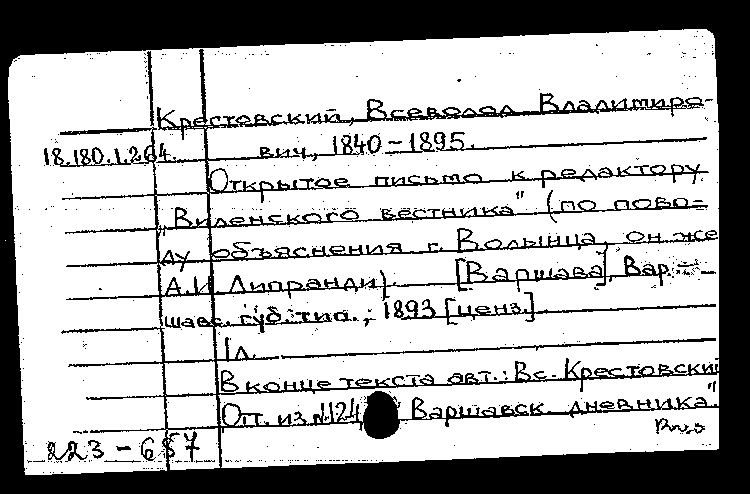 Крестовский, Всеволод Владимиро-
18.180.1.264. вич, 1840-1895.
Открытое письмо к редактору
„Виленского вестника" (по пово=
ду объяснения г. Волынца, он же
А.И. Липранди). [Варшава], Вар=
шавс. губ. тип., 1893 [ценз.].
1л.
В конце текста авт.: Вс. Крестовский
Отт. из №124 Варшавск. дневника".
223-687